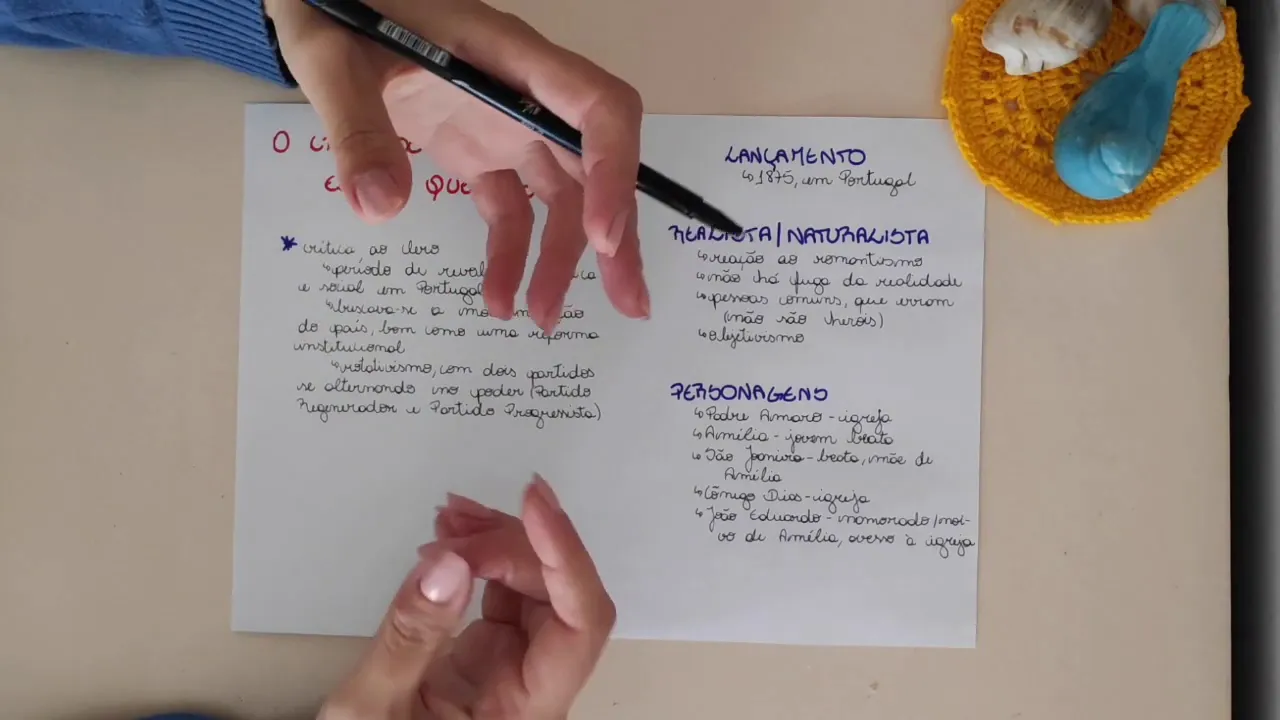 O
QUE
* crítica ao clero
↳período de
e social em Portugal
↳buscava-se a
do país, bem como uma reforma
institucional
↳rotativismo, com dois partidos
se alternando no poder (Partido
Regenerador e Partido Progressista)
LANÇAMENTO
↳1875, em Portugal
REALISTA/NATURALISTA
↳reação ao romantismo
↳não há fuga da realidade
↳pessoas comuns, que erram
(não são heróis)
↳objetivismo
PERSONAGENS
↳Padre Amaro - igreja
↳Amélia - jovem beata
↳São Joaneira - beata, mãe de
Amélia
↳Cônego Dias - igreja
↳João Eduardo - namorado/noi-
vo de Amélia, avesso à igreja